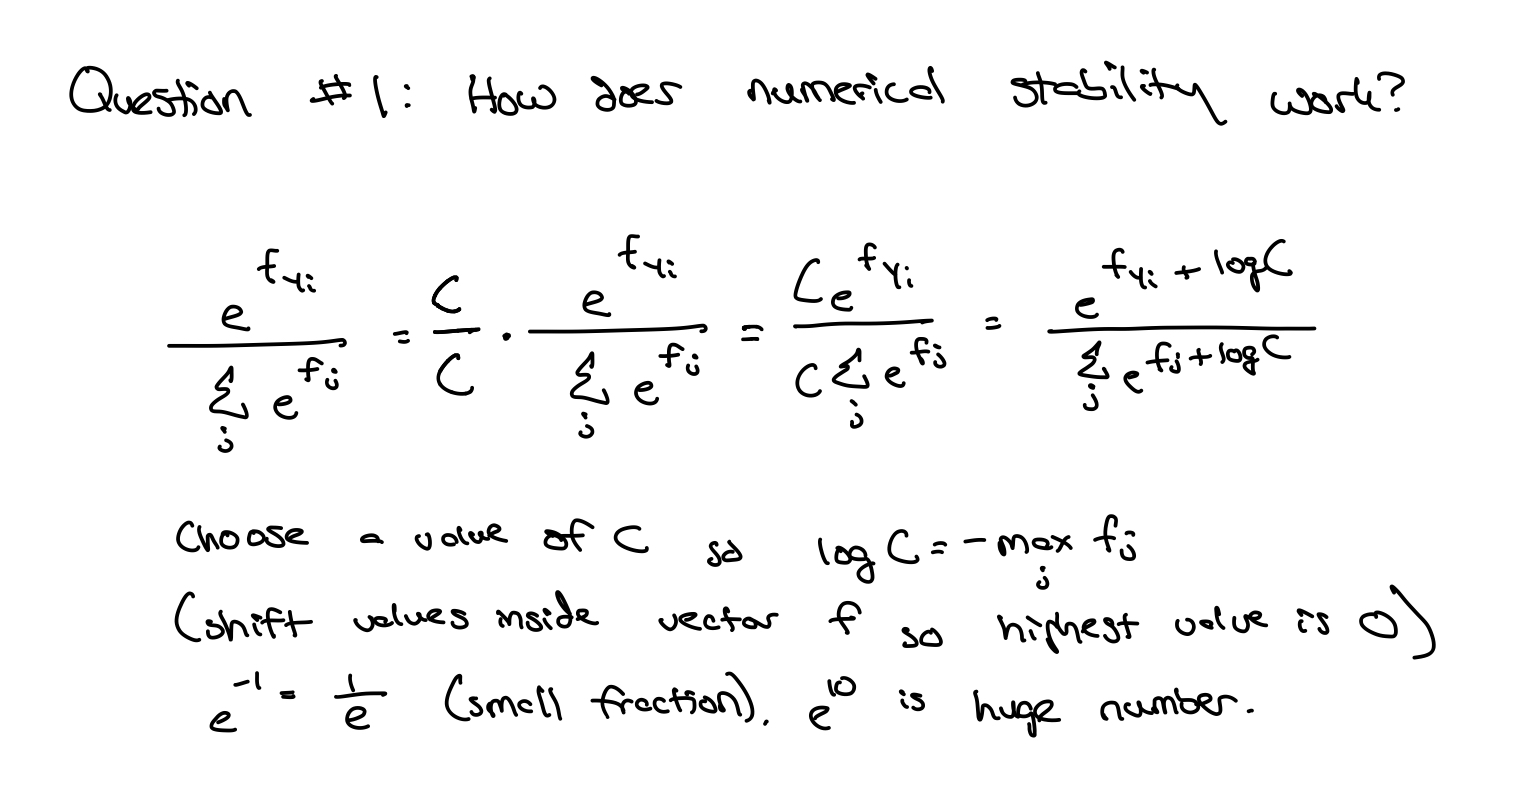 Question #1: How does numerical stability work?
e^{f_{y_i}} / Σ_j e^{f_j} = C/C · e^{f_{y_i}} / Σ_j e^{f_j} = Ce^{f_{y_i}} / CΣ_j e^{f_j} = e^{f_{y_i} + logC} / Σ_j e^{f_j + logC}
Choose a value of C so log C = -max_j f_j
(shift values inside vector f so highest value is 0)
e^{-1} = 1/e (small fraction). e^{10} is huge number.